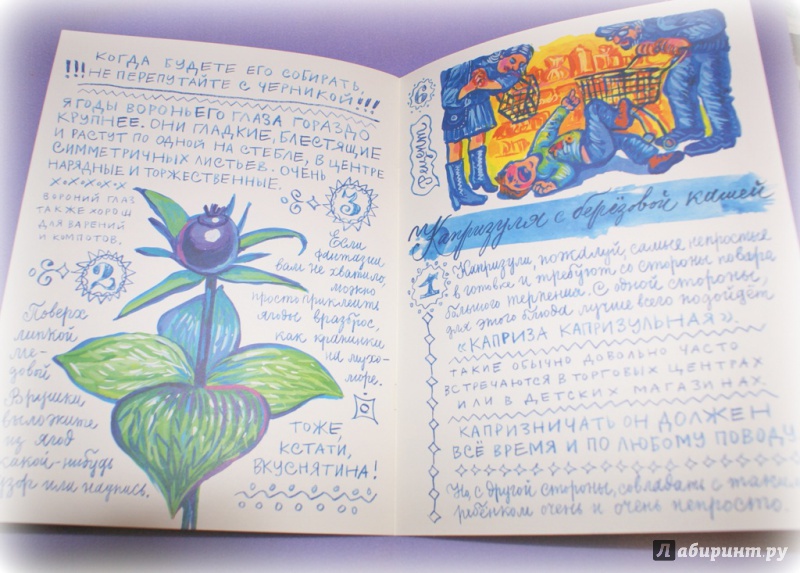 КОГДА БУДЕТЕ ЕГО СОБИРАТЬ,
!!! НЕ ПЕРЕПУТАЙТЕ С ЧЕРНИКОЙ!!!
ЯГОДЫ ВОРОНЬЕГО ГЛАЗА ГОРАЗДО
КРУПНЕЕ. ОНИ ГЛАДКИЕ, БЛЕСТЯЩИЕ
И РАСТУТ ПО ОДНОЙ НА СТЕБЛЕ, В ЦЕНТРЕ
СИММЕТРИЧНЫХ ЛИСТЬЕВ. ОЧЕНЬ
НАРЯДНЫЕ И ТОРЖЕСТВЕННЫЕ.
ВОРОНИЙ ГЛАЗ
ТАКЖЕ ХОРОШ
ДЛЯ ВАРЕНИЙ
И КОМПОТОВ.
2
Поверх
липкой
ме-
довой
Врушки
выложите
из ягод
какой-нибудь
узор или надпись.
3
Если
фантазии
вам не хватило,
можно
просто приклеить
ягоды вразброс,
как крапинки
на мухо-
море.
ТОЖЕ,
КСТАТИ,
ВКУСНЯТИНА!
6
Рецепт
Капризуля с берёзовой кашей
1
Капризули, пожалуй, самые непростые
в готовке и требуют со стороны повара
большого терпения. С одной стороны,
для этого блюда лучше всего подойдёт
«КАПРИЗА КАПРИЗУЛЬНАЯ».
ТАКИЕ ОБЫЧНО ДОВОЛЬНО ЧАСТО
ВСТРЕЧАЮТСЯ В ТОРГОВЫХ ЦЕНТРАХ
ИЛИ В ДЕТСКИХ МАГАЗИНАХ.
КАПРИЗНИЧАТЬ ОН ДОЛЖЕН
ВСЁ ВРЕМЯ И ПО ЛЮБОМУ ПОВОДУ
Но, с другой стороны, совладать с таким
ребёнком очень и очень непросто.
Лабиринт.ру